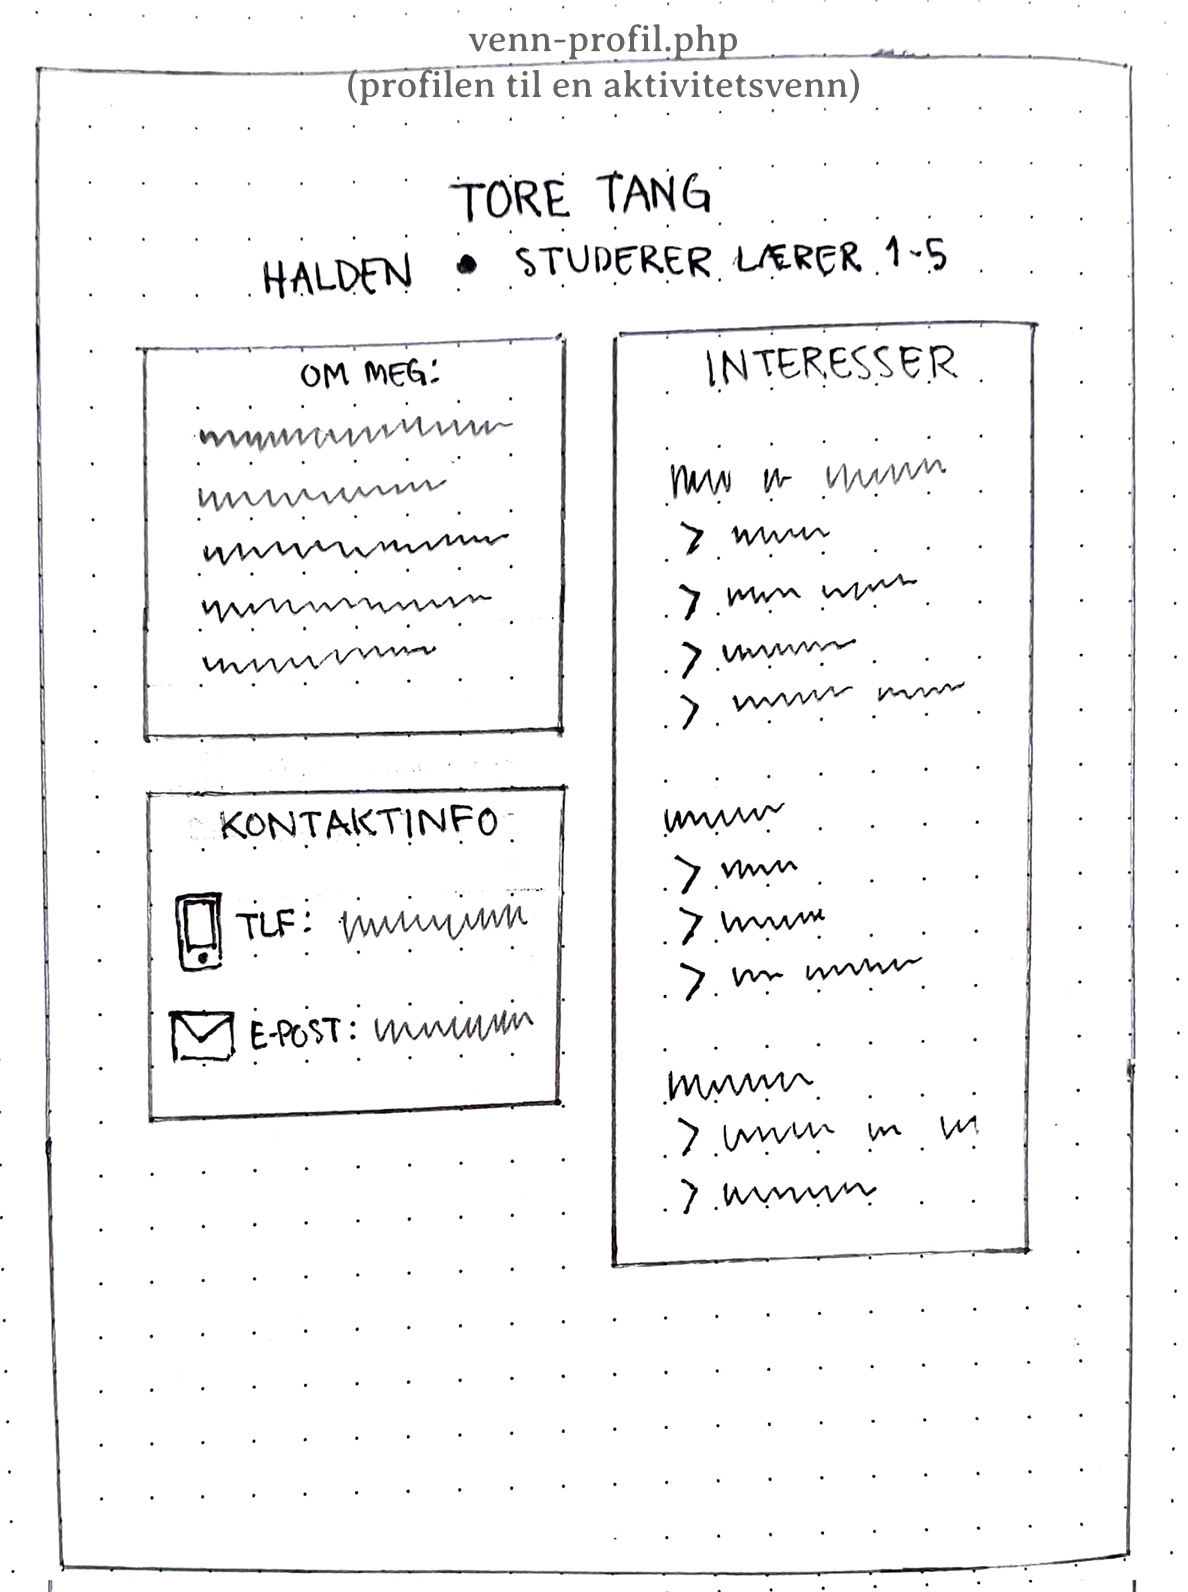 venn-profil.php
(profilen til en aktivitetsvenn)
TORE TANG
HALDEN • STUDERER LÆRER 1-5
OM MEG:
KONTAKTINFO
TLF:
E-POST:
INTERESSER
>
>
>
>
>
>
>
>
>